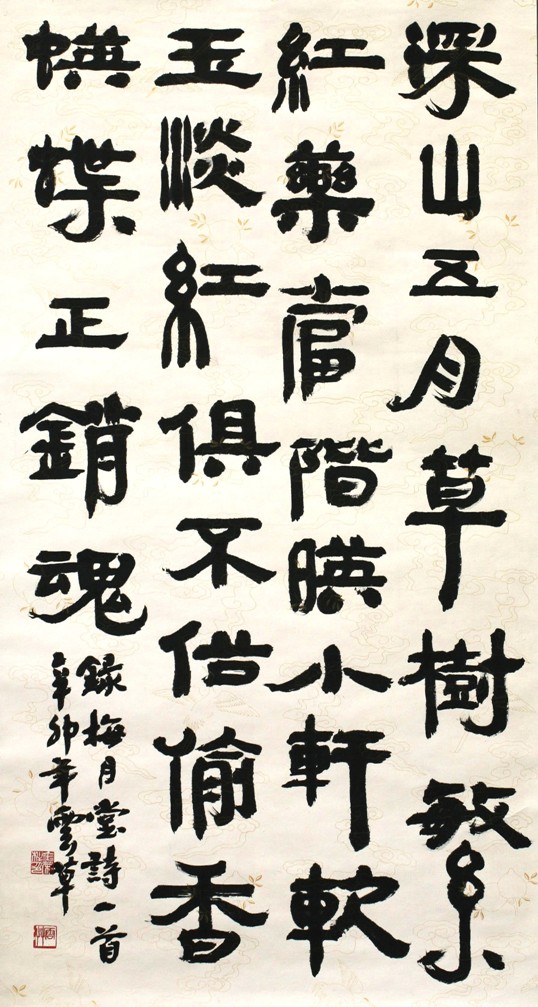 深山五月草樹繁
紅藥當階暎小軒軟
玉淡紅俱不俗偷香
蛺蝶正銷魂
錄梅月堂詩一首
辛卯年雲草